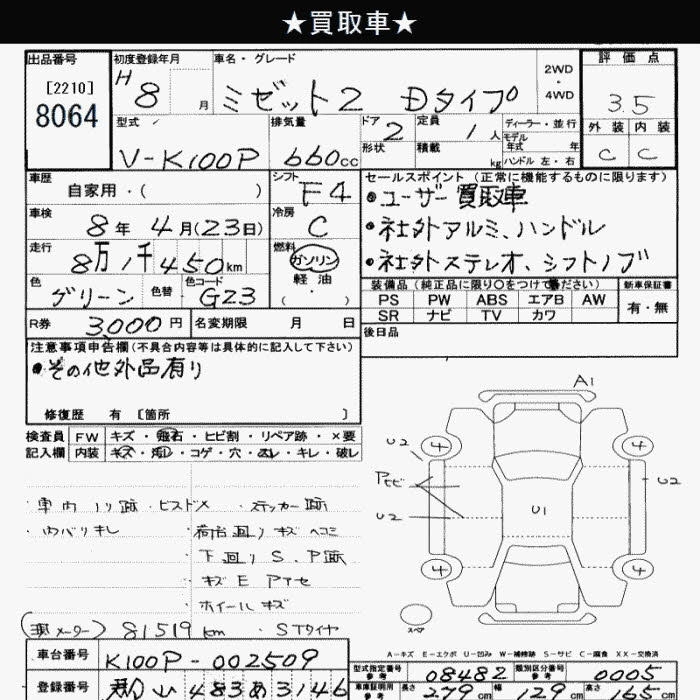 ★買取車★
出品番号
[2210]
8064
初度登録年月
H
8 月
車名・グレード
ミゼット2 Dタイプ
2WD
・
4WD
評価点
3.5
外装 内装
C C
型式
V-K100P
排気量
660cc
ドア
2
形状
定員
1人
積載
kg
ディーラー・並行
モデル
年式 年
ハンドル 左・右
車歴
自家用・( )
シフト
F4
車検
8年 4月(23日)
冷房
C
走行
8万1千450km
燃料
ガソリン
軽油
( ・ )
色
グリーン
色替
色コード
G23
R券
3,000円
名変期限 月 日
セールスポイント (正常に機能するものに限ります)
•ユーザー買取車
•社外アルミ、ハンドル
•社外ステレオ、シフトノブ
装備品(純正品に限り〇をつけて下さい)
新車保証書
PS PW ABS エアB AW
SR ナビ TV カワ
有・無
後日品
注意事項申告欄(不具合内容等は具体的に記入して下さい)
•その他外品有り
修復歴 有 [箇所 ]
検査員
記入欄
FW キズ・飛石・ヒビ割・リペア跡・×要
内装 キズ・汚レ・コゲ・穴・スレ・キレ・破レ
・車内ノリ跡・ビスドメ ・ステッカー跡
・内バリキレ ・荷台回りキズヘコミ
・下回りS、P跡
・キズEアセ
・ホイールキズ
(現メーター) 81519km ・STタイヤ
A1
U2
4
4
U2
U2
U1
4
4
スペア
A-キズ E-エクボ U-凹み W-補修跡 S-サビ C-腐食 XX-交換済
車台番号
K100P-002509
登録番号
483あ3146
型式指定番号
参考
08482
類別区分番号
参考
0005
車庫証明用
参考
長さ
279cm
幅
129cm
高さ
165cm